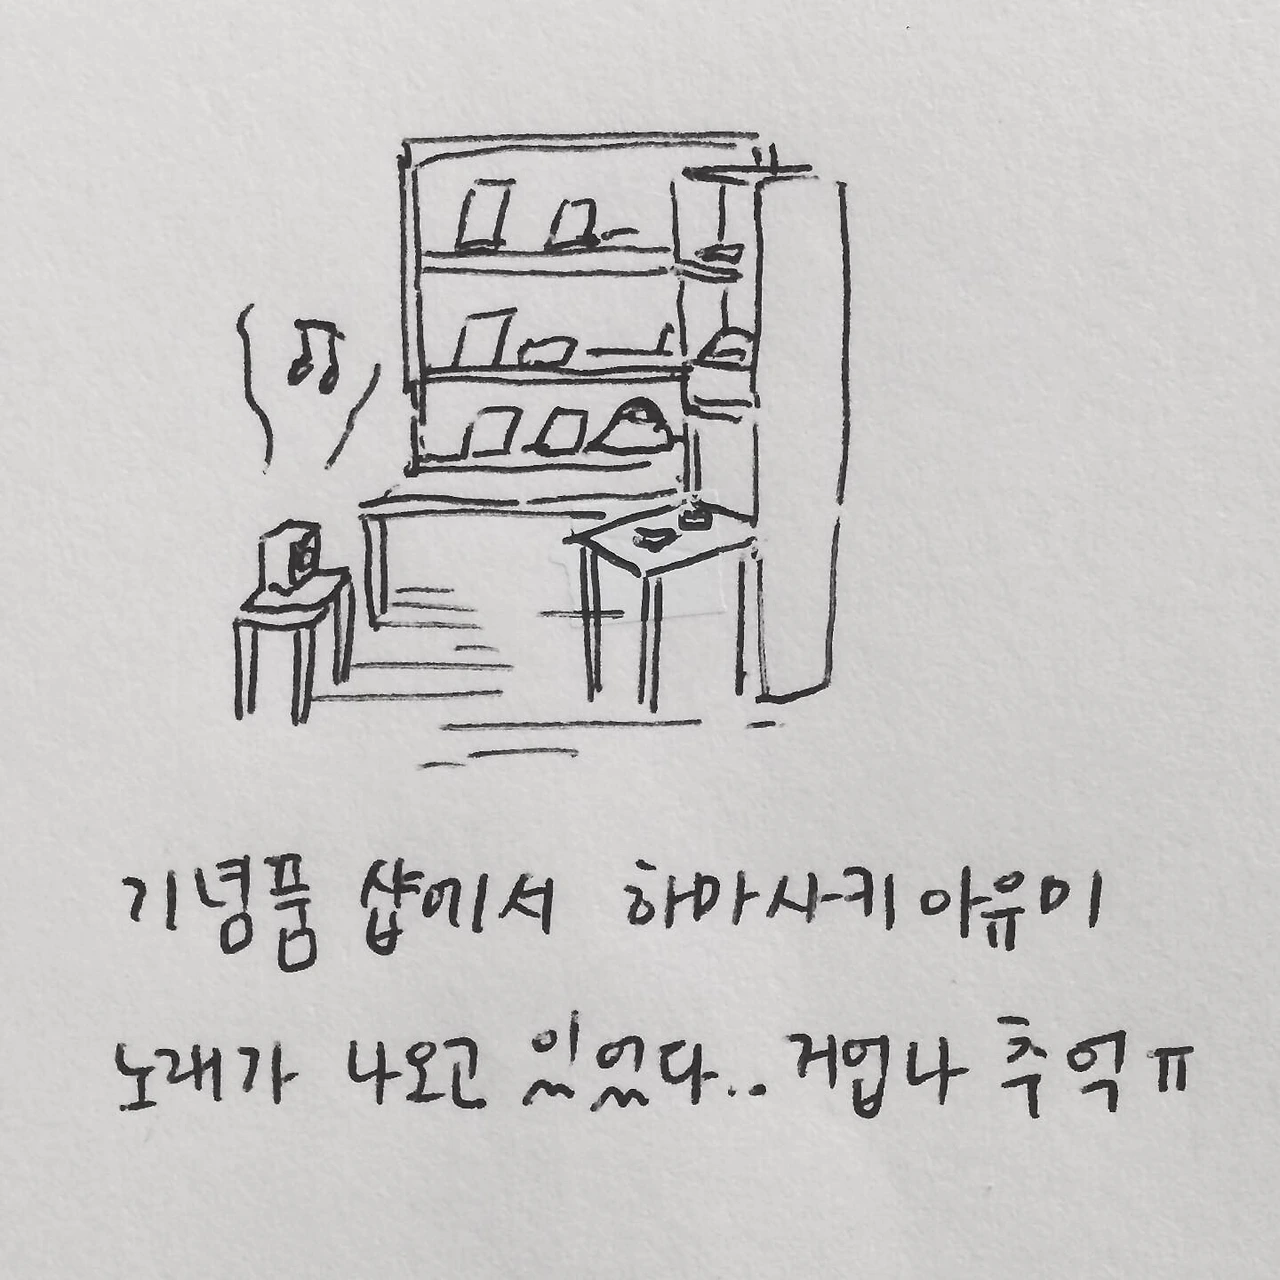 기념품 샵에서 하마사키 아유미
노래가 나오고 있었다.. 겁나 추억 ㅠ